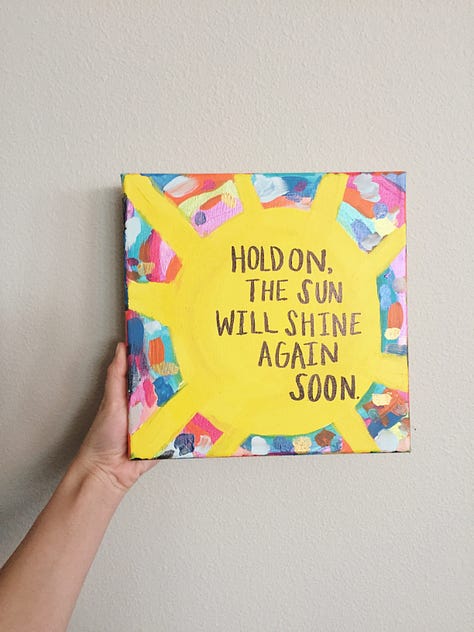 HOLD ON,
THE SUN
WILL SHINE
AGAIN
SOON.